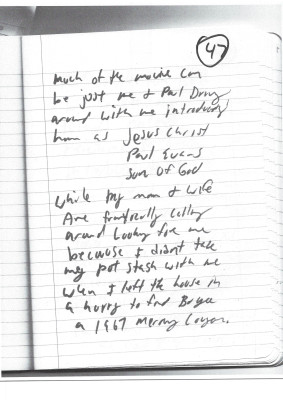 47
much of the movie can
be just me & Paul Driving
around with me introducing
him as Jesus Christ
Paul Evans
Son Of God
while my mom & wife
Are frantically calling
around Looking for me
because I didn't take
my pot stash with me
when I left the house in
a hurry to find Bryce
a 1967 Mercury Cougar.